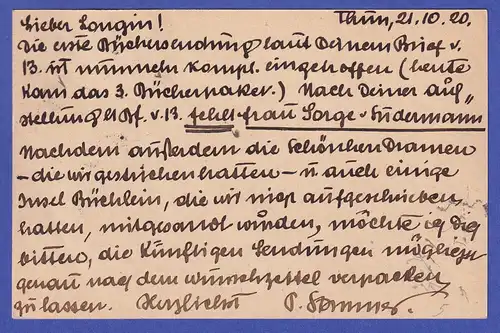 Lieber Longin! Thun, 21.10.20.
Die erste Büchersendung laut Deinem Brief v.
13. ist nunmehr kompl. eingetroffen (heute
kam das 3. Bücherpaket.) Nach Deiner Auf-
stellung lt Bf. v. 13. fehlt Frau Sorge v. Sudermann
Nachdem außerdem die Schönherr Dramen
– die wir gestrichen hatten – u auch einige
Insel Büchlein, die wir nicht aufgeschrieben
hatten, mitgesandt wurden, möchte ich Dich
bitten, die künftigen Sendungen möglichst
genau nach dem Wunschzettel verpacken
zu lassen. Herzlichst